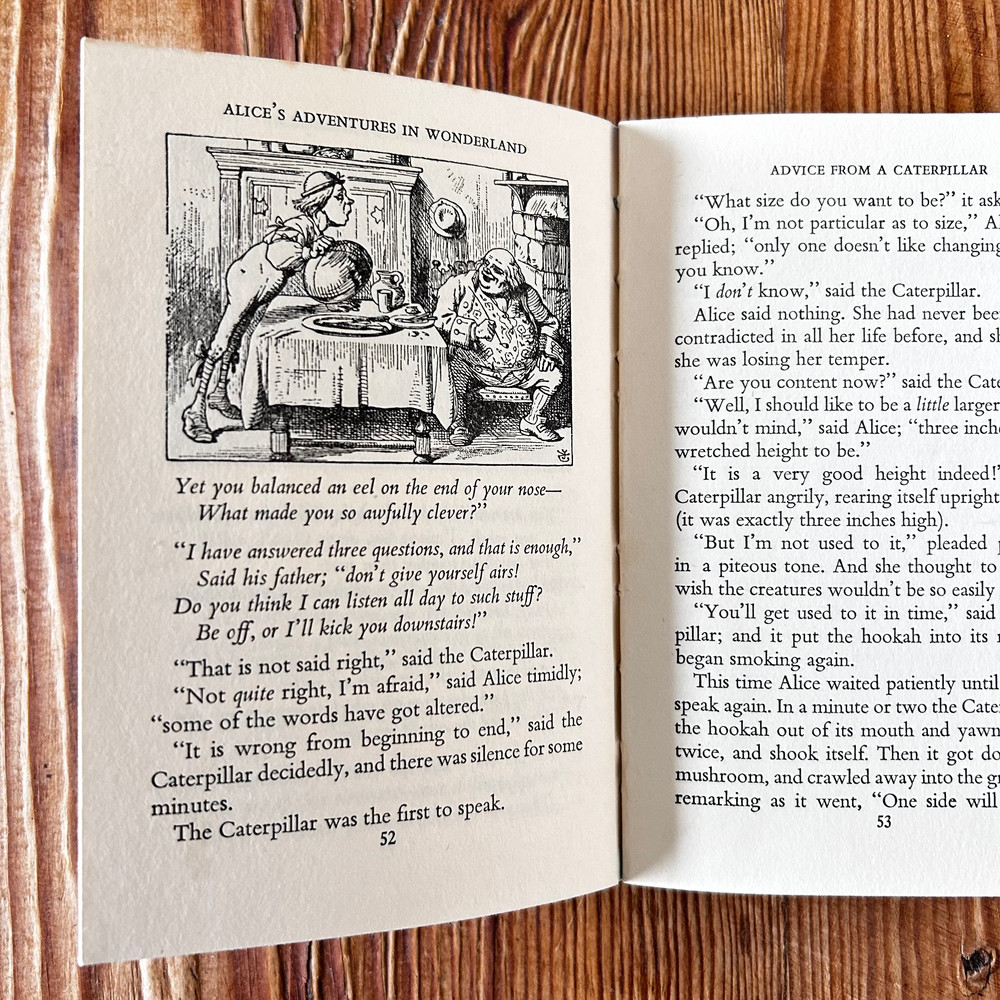 ALICE'S ADVENTURES IN WONDERLAND
Yet you balanced an eel on the end of your nose—
What made you so awfully clever?”
“I have answered three questions, and that is enough,”
Said his father; “don't give yourself airs!
Do you think I can listen all day to such stuff?
Be off, or I'll kick you downstairs!”
“That is not said right,” said the Caterpillar.
“Not quite right, I'm afraid,” said Alice timidly;
“some of the words have got altered.”
“It is wrong from beginning to end,” said the
Caterpillar decidedly, and there was silence for some
minutes.
The Caterpillar was the first to speak.
52
ADVICE FROM A CATERPILLAR
“What size do you want to be?” it ask
“Oh, I'm not particular as to size,” Al
replied; “only one doesn't like changing
you know.”
“I don't know,” said the Caterpillar.
Alice said nothing. She had never bee
contradicted in all her life before, and sh
she was losing her temper.
“Are you content now?” said the Cate
“Well, I should like to be a little larger
wouldn't mind,” said Alice; “three inche
wretched height to be.”
“It is a very good height indeed!”
Caterpillar angrily, rearing itself upright
(it was exactly three inches high).
“But I'm not used to it,” pleaded p
in a piteous tone. And she thought to
wish the creatures wouldn't be so easily
“You'll get used to it in time,” said
pillar; and it put the hookah into its
began smoking again.
This time Alice waited patiently until
speak again. In a minute or two the Cate
the hookah out of its mouth and yawn
twice, and shook itself. Then it got do
mushroom, and crawled away into the g
remarking as it went, “One side will
53